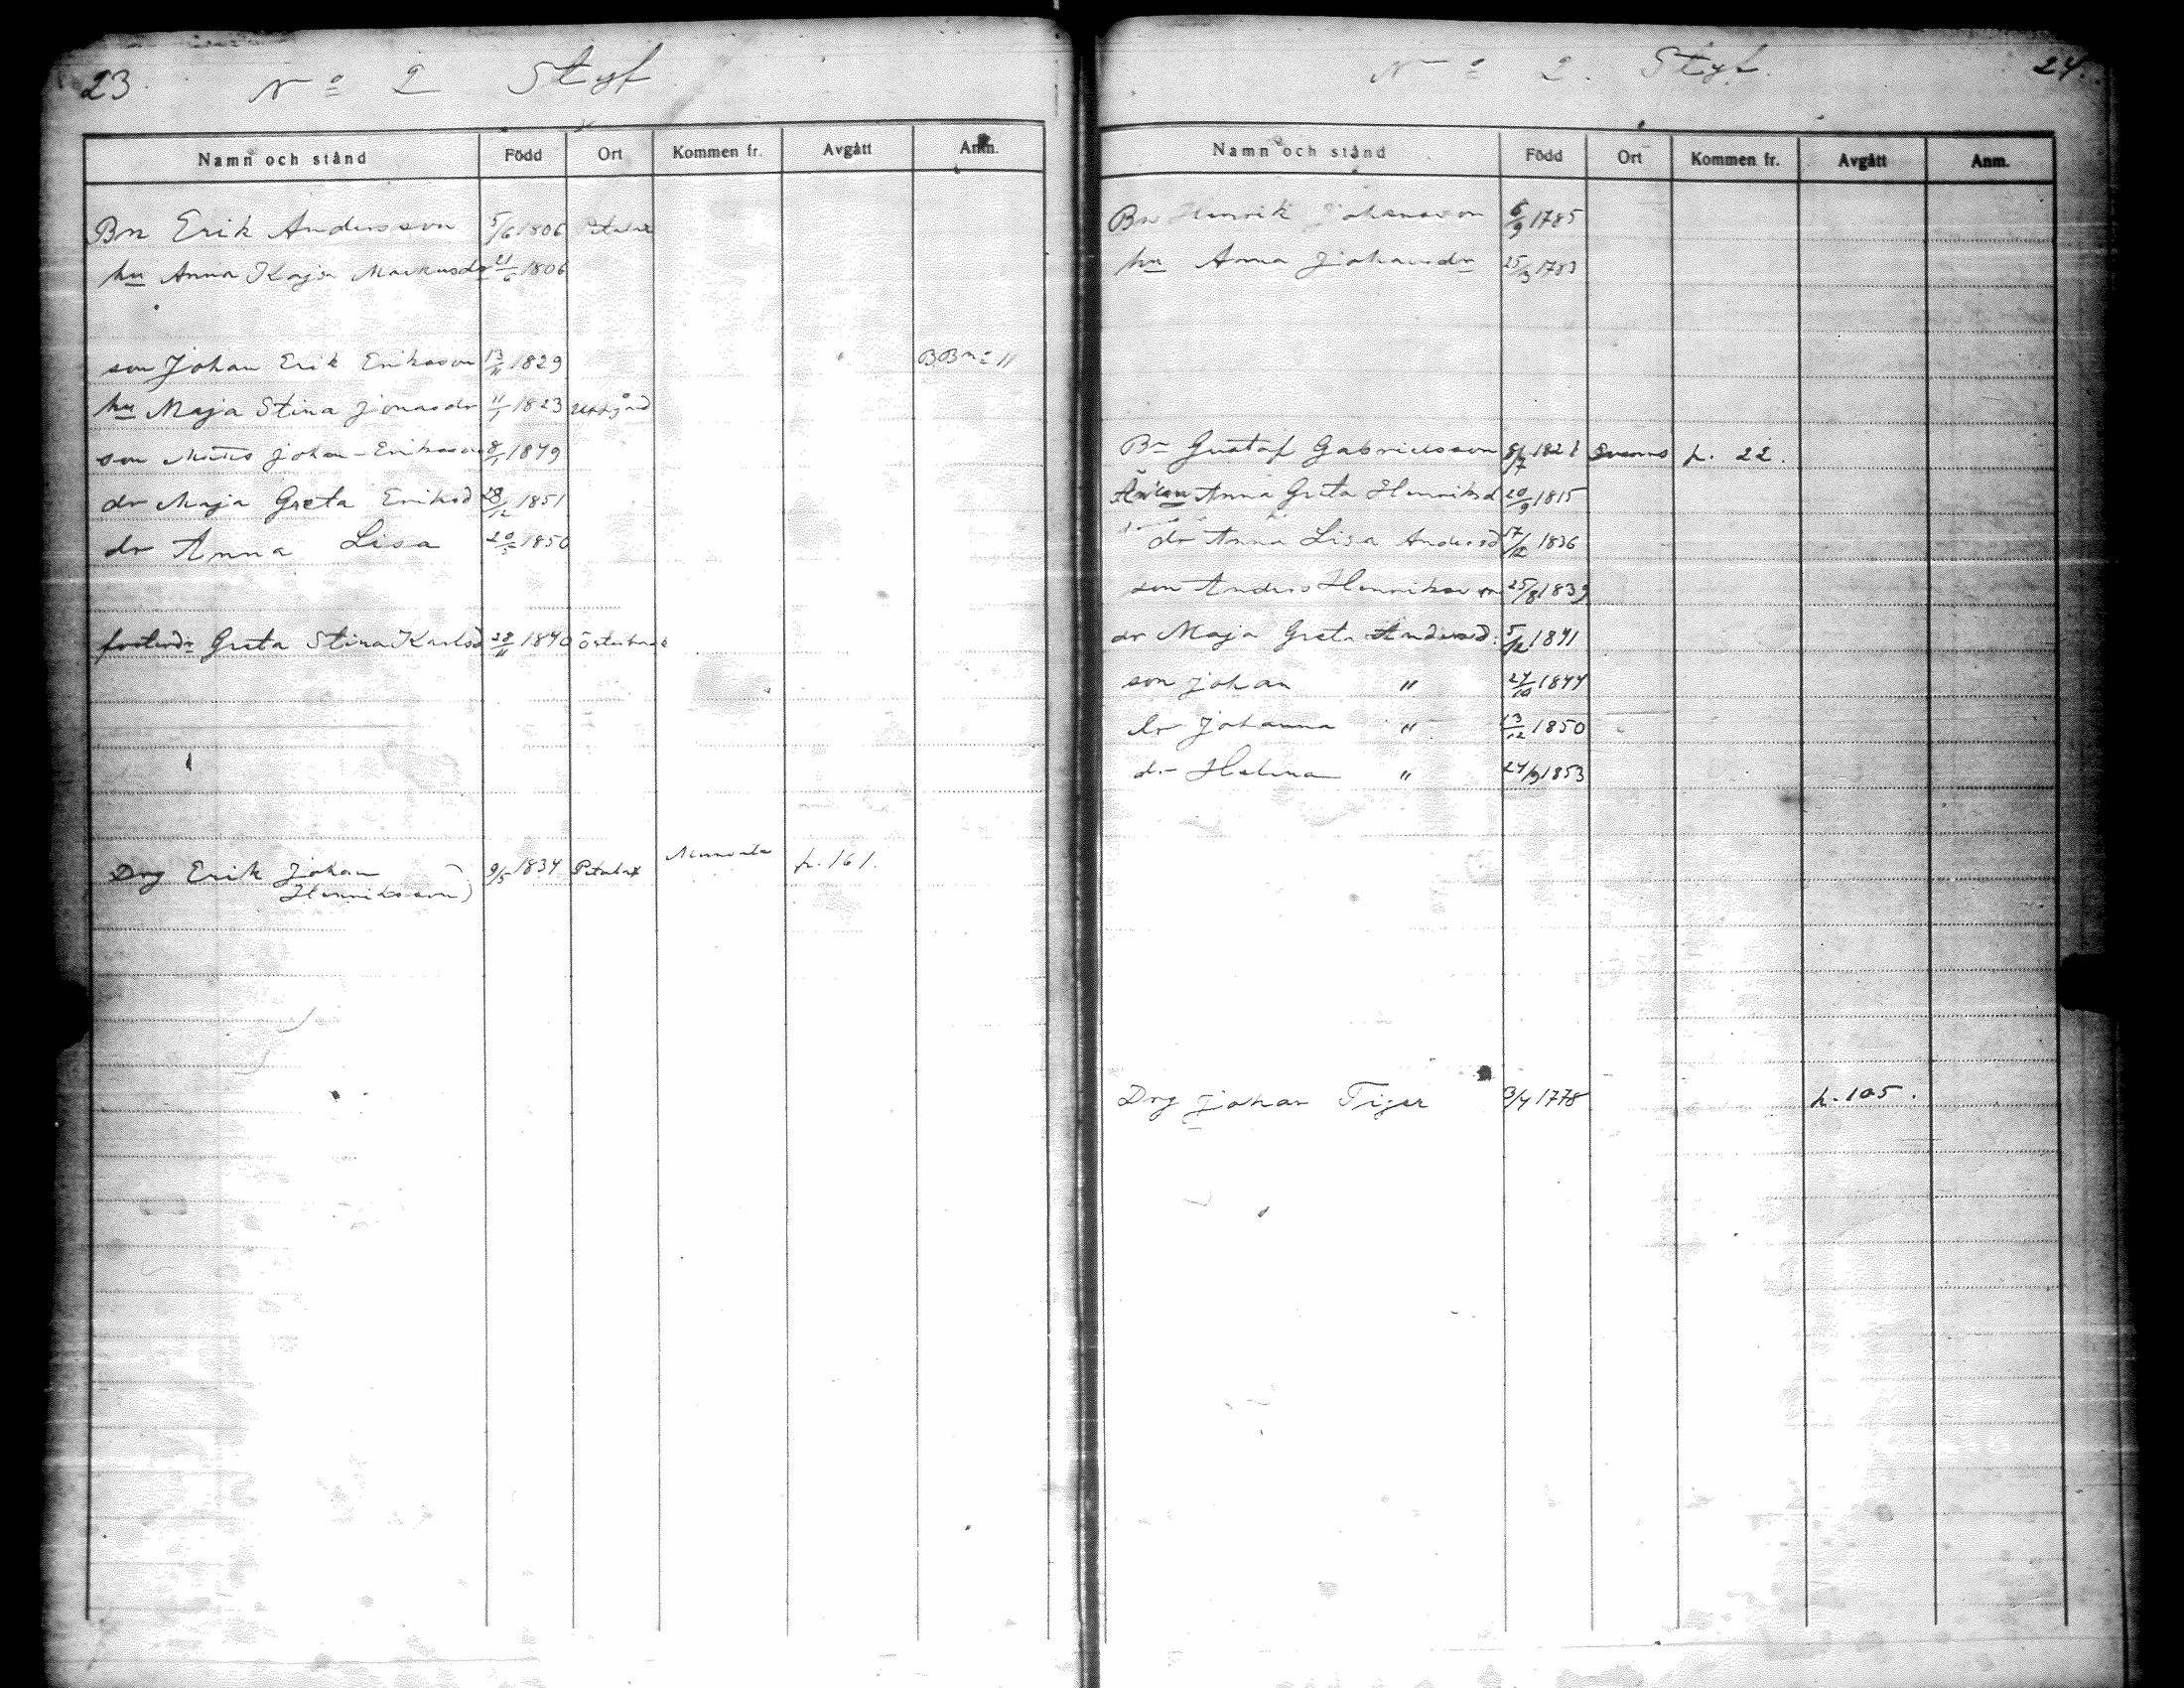 23. No 2 Styf
Namn och stånd Född Ort Kommen fr. Avgått Anm.
Bn Erik Andersson 5/6 1806 Petalax
hu Anna Kajsa Markusdr 21/6 1806
son Johan Erik Eriksson 13/11 1829
hu Maja Stina Jonasdr 11/1 1823
son Matts Johan Eriksson 8/1 1849
dr Maja Greta Eriksd 28/12 1851
dr Anna Lisa 20/5 1850
fosterdr Greta Stina Karlsd 28/11 1840
Drg Erik Johan 9/5 1834 Petalax p. 161.
Henriksson)
24.
No 2. Styf.
Namn och stånd Född Ort Kommen fr. Avgått Anm.
Bn Henrik Johansson 6/9 1785
hu Anna Johansdr 25/3 1783
Bn Gustaf Gabrielsson 8/7 p. 22.
Änkan Anna Greta Henriksd 20/9 1815
dr Anna Lisa Andersd 17/12 1836
son Anders Henriksson 25/8 1839
dr Maja Greta Andersd. 5/12 1841
son Johan " 24/10 1844
dr Johanna " 13/12 1850
dr Helena " 24/9 1853
Drg Johan Tiger 3/4 1778 p. 105.